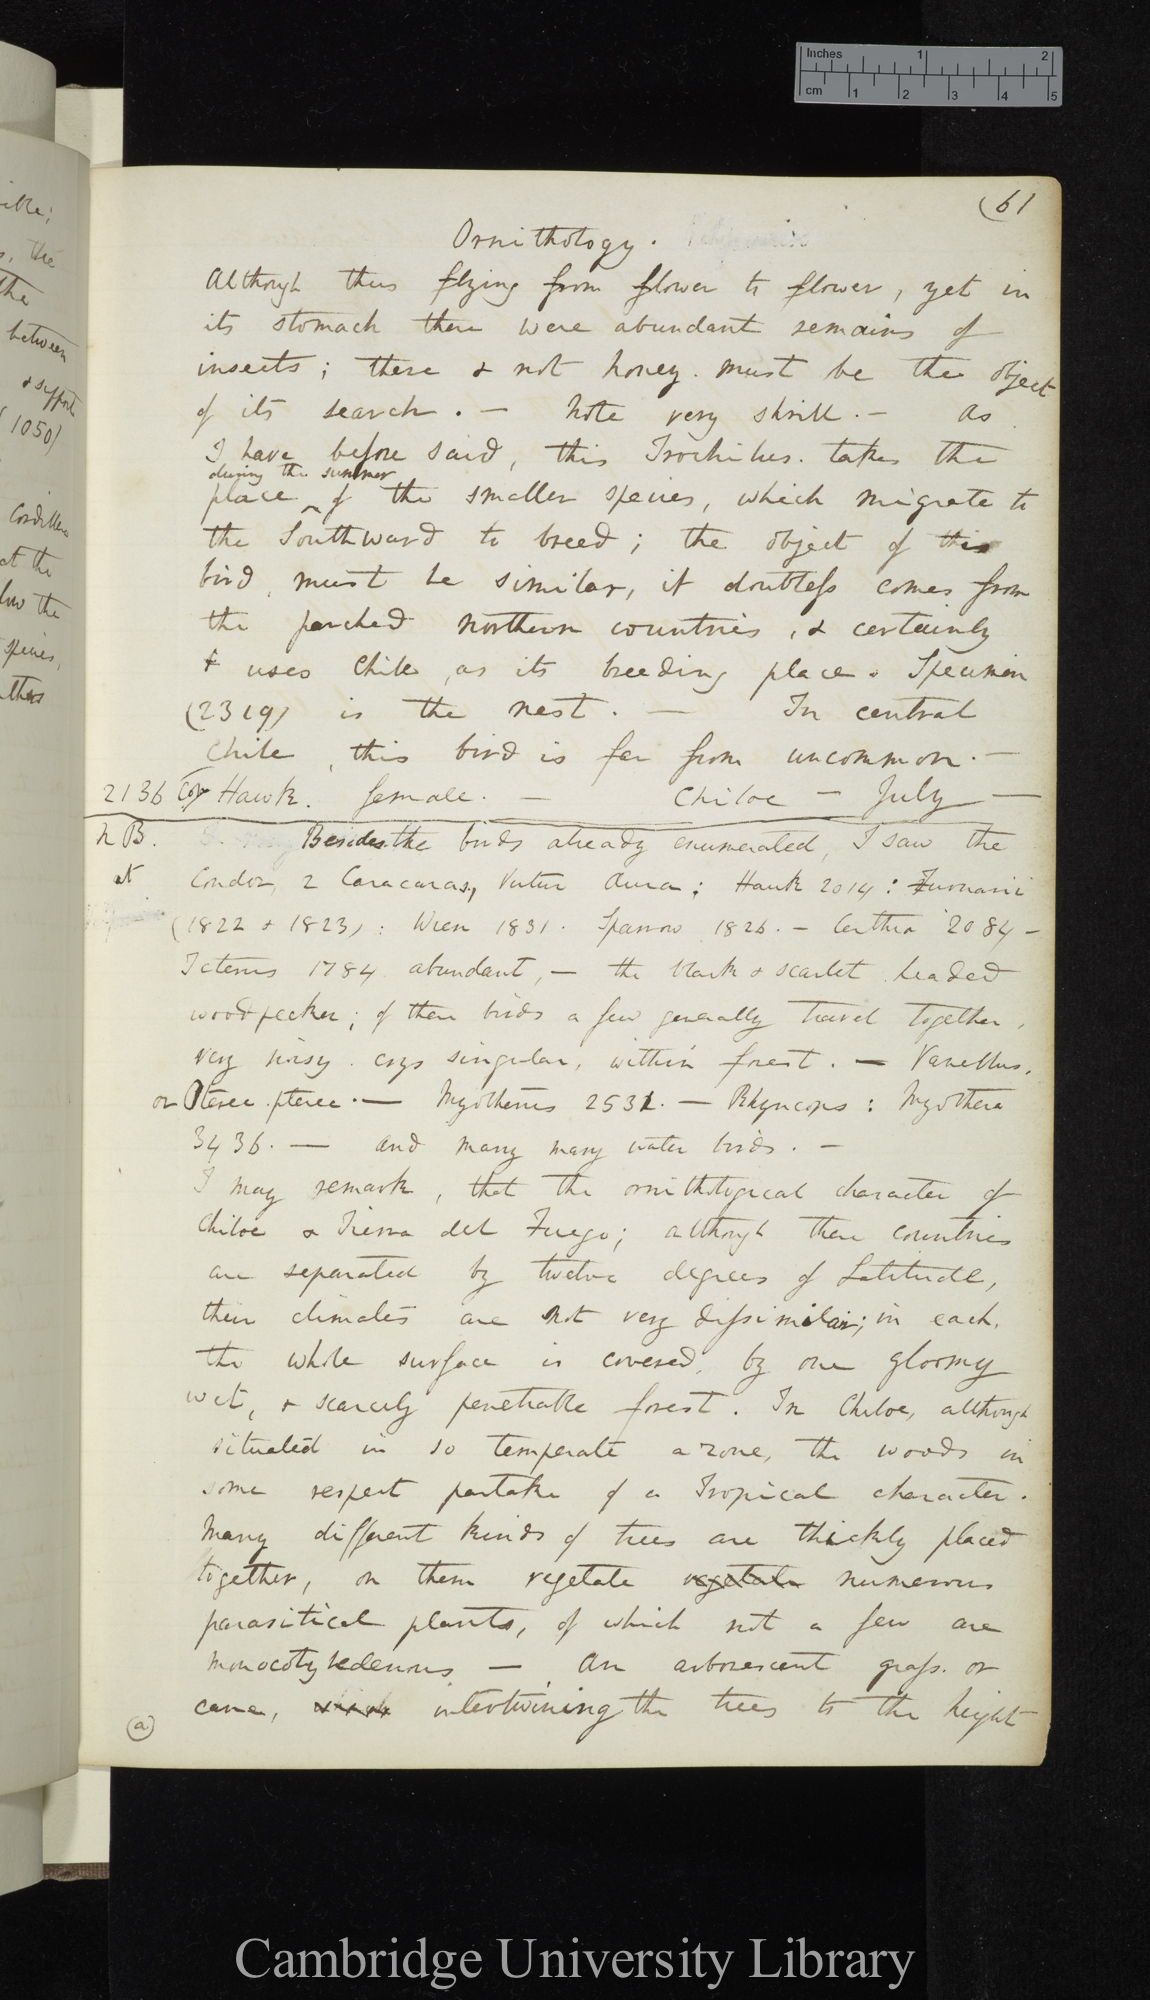 Inches 1 2
cm 1 2 3 4 5
(61
Ornithology.
Although thus flying from flower to flower, yet in
its stomach there were abundant remains of
insects; there & not honey. must be the object
of its search. — Note very shrill. — As
I have before said, this Trochilus. takes the
during the summer
place ‸ of the smaller species, which migrate to
the Southward to breed; the object of this
bird, must be similar, it doubtless comes from
the parched northern countries, & certainly
& uses Chile, as its breeding place. Specimen
(2319) is the nest. — In central
Chile, this bird is far from uncommon. —
2136 Cop Hawk. female. — Chiloe — July —
N B. Besides the birds already enumerated, I saw the
at Condor, 2 Caracaras, Vultur Aura; Hawk 2014: Furnarii
(1822 & 1823): Wren 1831. Sparrow 1826. — Certhia 2084 —
Icterus 1784 abundant, — the black & scarlet headed
woodpecker; of these birds a few generally travel together,
very noisy. crys singular, within forest. — Vanellus,
or teree-pteree. — Myothenus 2531. — Rhyncops: Myothera
3436. — and many many water birds. —
I may remark, that the ornithological character of
Chiloe & Tierra del Fuego; although these countries
are separated by twelve degrees of Latitude,
their climates are not very dissimilar; in each,
the whole surface is covered, by one gloomy
wet, & scarcely penetrable forest. In Chiloe, although
situated in so temperate a zone, the woods in
some respect partake of a Tropical character.
Many different kinds of trees are thickly placed
together, on them vegetate vegetate numerous
parasitical plants, of which not a few are
monocotyledenous — An arborescent grass. or
cane, which intertwining the trees to the height
(a)
ible;
s, the
the
between
& support
(1050)
Cordillera
at the
low the
species,
others
Cambridge University Library